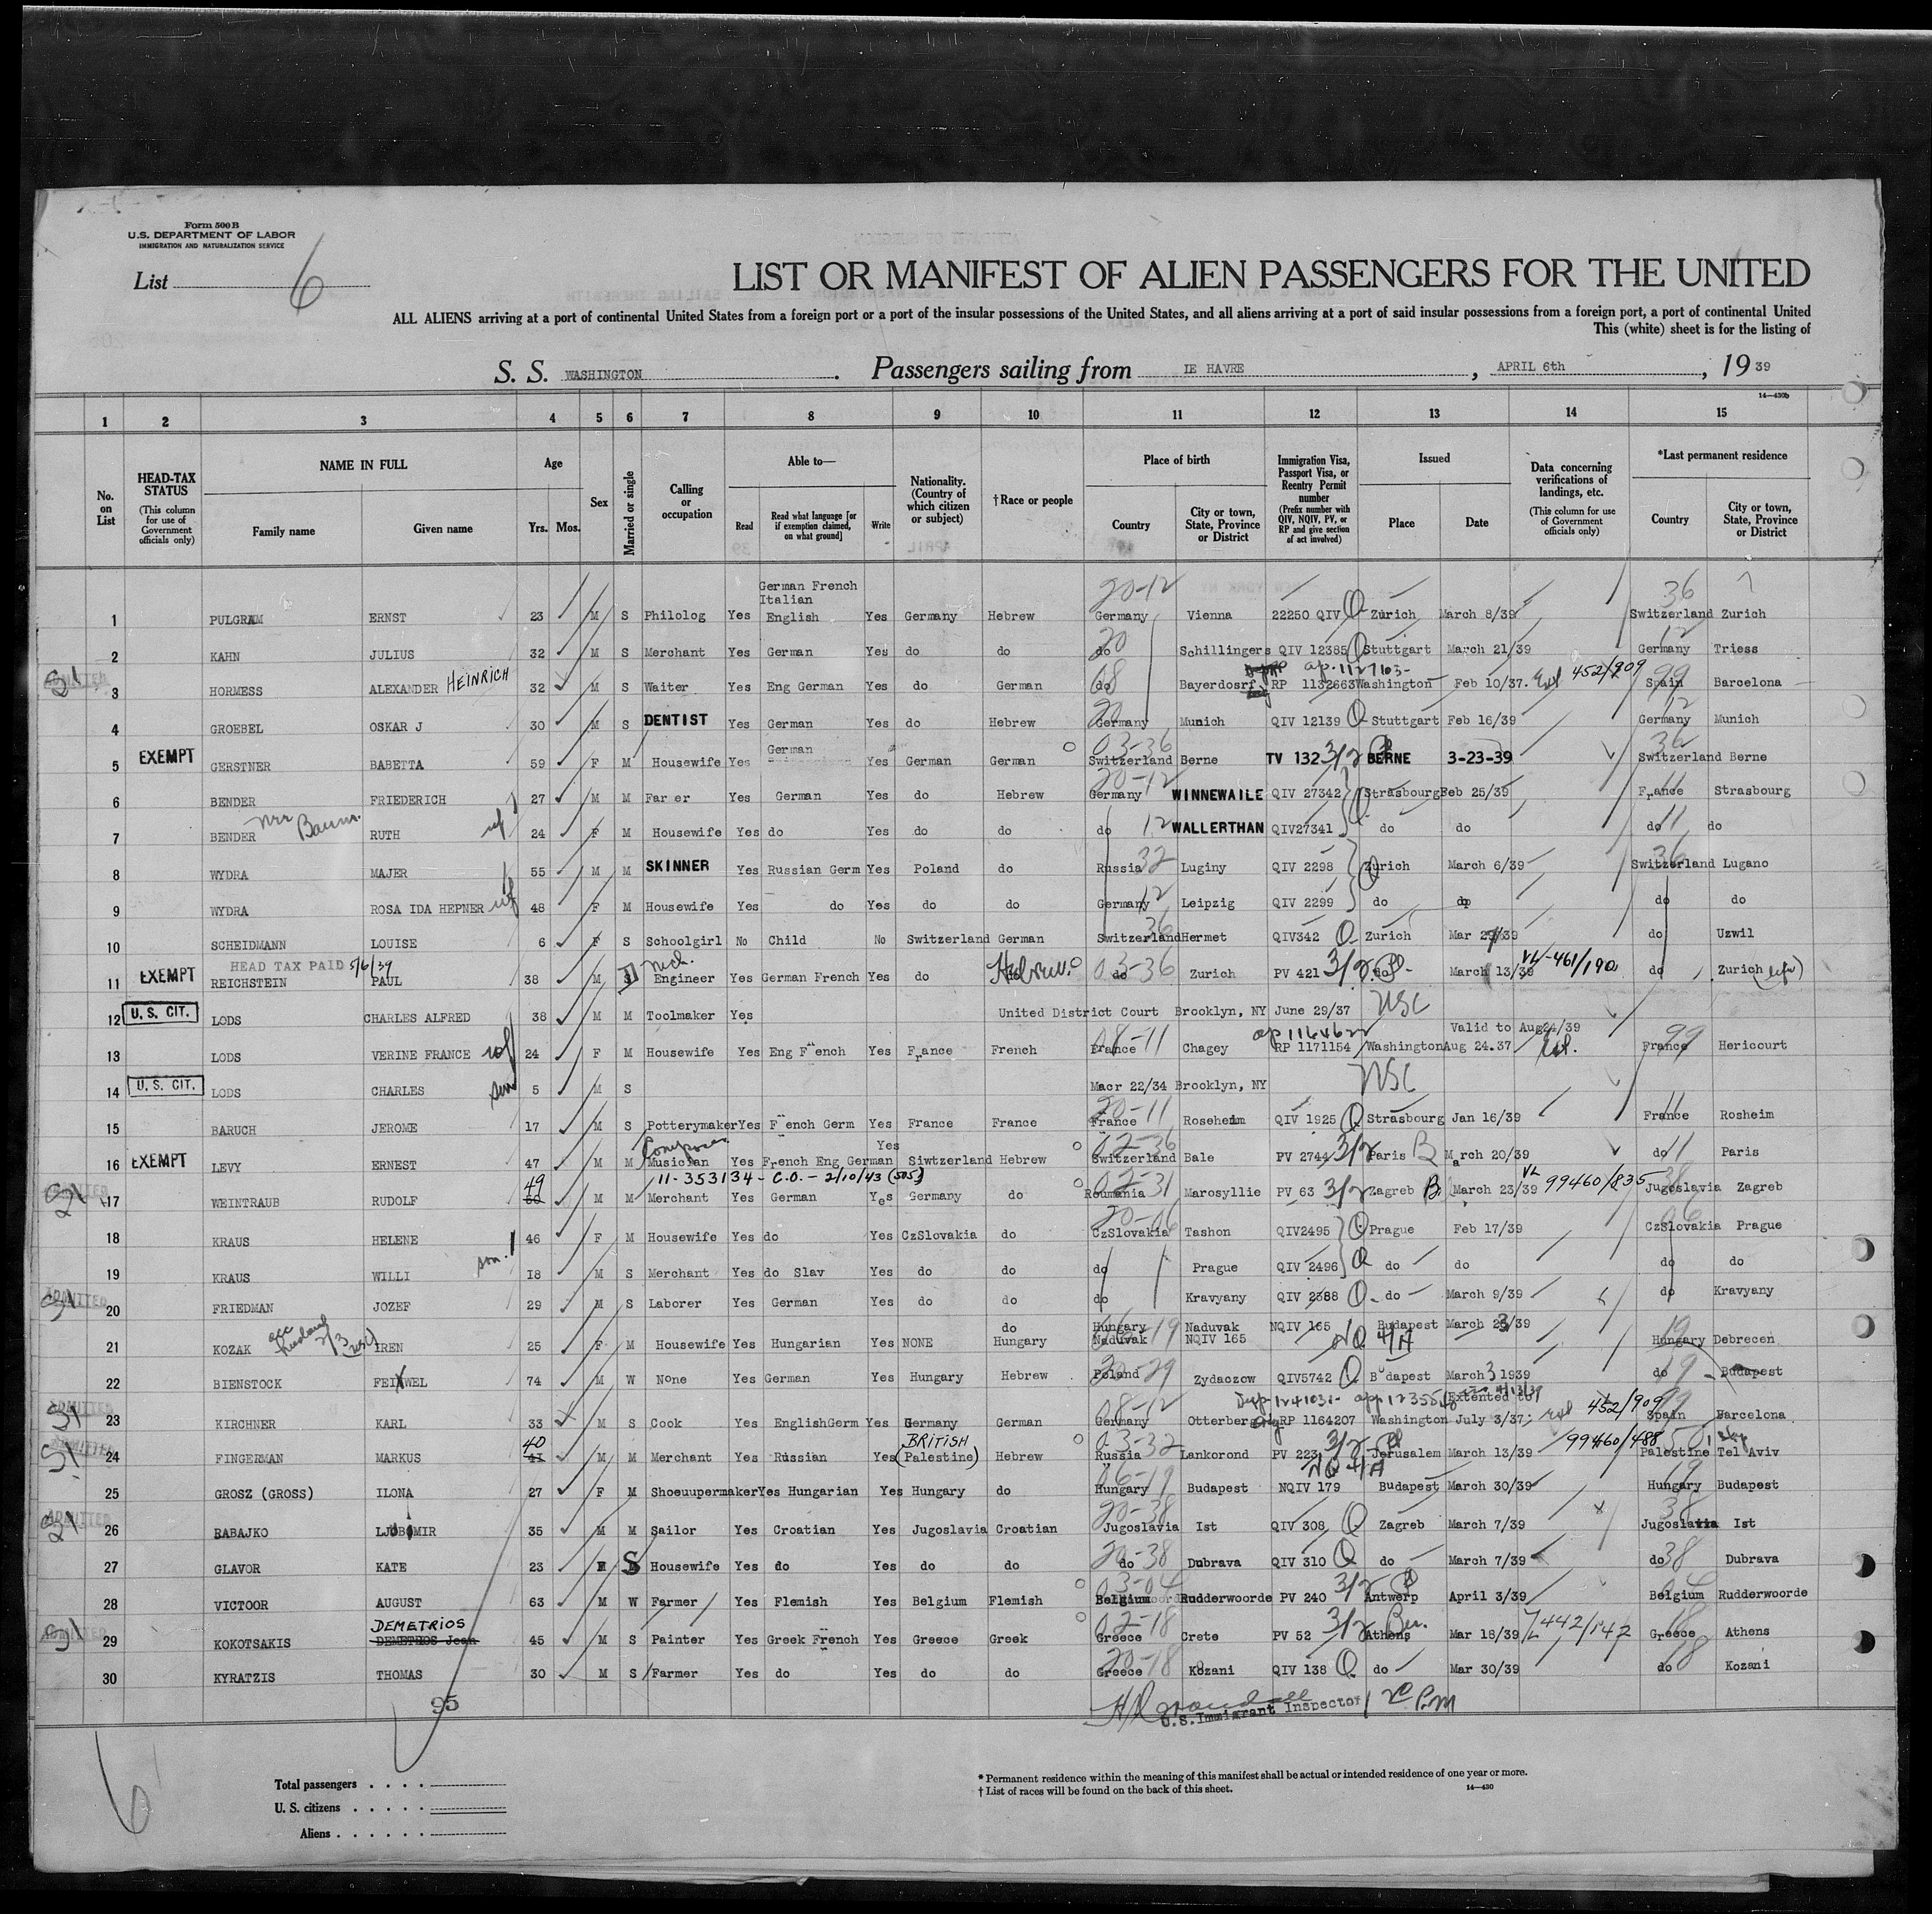 Form 500 B
U.S. DEPARTMENT OF LABOR
IMMIGRATION AND NATURALIZATION SERVICE
List 6
LIST OR MANIFEST OF ALIEN PASSENGERS FOR THE UNITED
ALL ALIENS arriving at a port of continental United States from a foreign port or a port of the insular possessions of the United States, and all aliens arriving at a port of said insular possessions from a foreign port, a port of continental United
This (white) sheet is for the listing of
S. S. WASHINGTON . Passengers sailing from IE HAVRE , APRIL 6th , 19 39
14—430b
1 2 3 4 5 6 7 8 9 10 11 12 13 14 15
No. on List
HEAD-TAX STATUS (This column for use of Government officials only)
NAME IN FULL Family name Given name
Age Yrs. Mos.
Sex
Married or single
Calling or occupation
Able to— Read Read what language [or if exemption claimed, on what ground] Write
Nationality. (Country of which citizen or subject)
†Race or people
Place of birth Country City or town, State, Province or District
Immigration Visa, Passport Visa, or Reentry Permit number (Prefix number with QIV, NQIV, PV, or RP and give section of act involved)
Issued Place Date
Data concerning verifications of landings, etc. (This column for use of Government officials only)
*Last permanent residence Country City or town, State, Province or District
German French
Italian
20-12 36
1 PULGRAM ERNST 23 M S Philolog Yes English Yes Germany Hebrew Germany Vienna 22250 QIV Zurich March 8/39 Switzerland Zurich
20 12
2 KAHN JULIUS 32 M S Merchant Yes German Yes do do do Schillingers QIV 12385 Stuttgart March 21/39 Germany Triess
ap. 1127103-
3 HORMESS ALEXANDER HEINRICH 32 M S Waiter Yes Eng German Yes do German do Bayerdosrf RP 1132663 Washington Feb 10/37. 452/909 Spain 99 Barcelona
4 GROEBEL OSKAR J 30 M S DENTIST Yes German Yes do Hebrew Germany Munich QIV 12139 Stuttgart Feb 16/39 Germany 12 Munich
German 03-36 36
5 EXEMPT GERSTNER BABETTA 59 F M Housewife Yes Yes German German Switzerland Berne TV 132 3/2 BERNE 3-23-39 Switzerland Berne
20-12 11
6 BENDER FRIEDERICH 27 M M Far er Yes German Yes do Hebrew Germany WINNEWAILE QIV 27342 Strasbourg Feb 25/39 France Strasbourg
7 BENDER RUTH wf 24 F M Housewife Yes do Yes do do do 12 WALLERTHAN QIV27341 do do do 11 do
8 WYDRA MAJER 55 M M SKINNER Yes Russian Germ Yes Poland do Russia 32 Luginy QIV 2298 Zurich March 6/39 Switzerland 36 Lugano
9 WYDRA ROSA IDA HEPNER wf 48 F M Housewife Yes do Yes do do Germany 12 Leipzig QIV 2299 do do do do
10 SCHEIDMANN LOUISE 6 F S Schoolgirl No Child No Switzerland German Switzerland 36 Hermet QIV342 Zurich Mar 29/39 do Uzwil
HEAD TAX PAID 5/6/39 Mech. VL-461/190
11 EXEMPT REICHSTEIN PAUL 38 M S Engineer Yes German French Yes do Hebrew. 03-36 do Zurich PV 421 3/2 do March 13/39 do Zurich
12 U. S. CIT. LODS CHARLES ALFRED 38 M M Toolmaker Yes United District Court Brooklyn, NY June 29/37 USC
ap 1164622 Valid to Aug24/39
13 LODS VERINE FRANCE wf 24 F M Housewife Yes Eng F ench Yes France French 08-11 France Chagey RP 1171154 Washington Aug 24.37 France 99 Hericourt
14 U. S. CIT. LODS CHARLES son 5 M S Macr 22/34 Brooklyn, NY USC
20-11 11
15 BARUCH JEROME 17 M S Potterymaker Yes F ench Germ Yes France France France Rosehe im QIV 1925 Strasbourg Jan 16/39 France Rosheim
Composer Yes 02-36
16 EXEMPT LEVY ERNEST 47 M M Musician Yes French Eng German Siwtzerland Hebrew Switzerland Bale PV 2744 3/2 Paris March 20/39 do 11 Paris
49 11-353134 - C.O. - 2/10/43 (505) 02-31 VL 99460/835
17 WEINTRAUB RUDOLF 60 M M Merchant Yes German Yes Germany do Roumania Marosyllie PV 63 3/2 Zagreb March 23/39 Jugoslavia 38 Zagreb
20-06 06
18 KRAUS HELENE 46 F M Housewife Yes do Yes CzSlovakia do CzSlovakia Tashon QIV2495 Prague Feb 17/39 CzSlovakia Prague
19 KRAUS WILLI son. 18 M S Merchant Yes do Slav Yes do do do Prague QIV 2496 do do do do
20 FRIEDMAN JOZEF 29 M S Laborer Yes German Yes do do do Kravyany QIV 2588 do March 9/39 do Kravyany
do Hungary Naduvak NQIV 165 Budapest March 23/39
21 KOZAK IREN 25 F M Housewife Yes Hungarian Yes NONE Hungary Naduvak NQIV 165 NQ 4/A Hungary 19 Debrecen
22 BIENSTOCK FEIWEL 74 M W None Yes German Yes Hungary Hebrew Poland 20-29 Zydaczow QIV5742 B dapest March 3 1939 do 19 Budapest
Extented to 4/13/39
23 KIRCHNER KARL 33 M S Cook Yes EnglishGerm Yes Germany German 08-12 Germany Otterberg RP 1164207 Washington July 3/37; 452/909 Spain 99 Barcelona
40 BRITISH 03-32 99460/488
24 FINGERMAN MARKUS 41 M M Merchant Yes Russian Yes (Palestine) Hebrew Russia Lankorond PV 223 3/2 Jerusalem March 13/39 Palestine Tel Aviv
06-19 NQ 4/A 19
25 GROSZ (GROSS) ILONA 27 F M Shoeuupermaker Yes Hungarian Yes Hungary do Hungary Budapest NQIV 179 Budapest March 30/39 Hungary Budapest
20-38 38
26 BABAJKO LJUBOMIR 35 M M Sailor Yes Croatian Yes Jugoslavia Croatian Jugoslavia Ist QIV 308 Zagreb March 7/39 Jugoslavia Ist
27 GLAVOR KATE 23 F S Housewife Yes do Yes do do 20-38 do Dubrava QIV 310 do March 7/39 do 38 Dubrava
03-04 04
28 VICTOOR AUGUST 63 M W Farmer Yes Flemish Yes Belgium Flemish Belgium Rudderwoorde PV 240 3/2 Antwerp April 3/39 Belgium Rudderwoorde
DEMETRIOS 02-18 442/142 18
29 KOKOTSAKIS DEMETRIOS Jean 45 M S Painter Yes Greek French Yes Greece Greek Greece Crete PV 52 3/2 Athens Mar 18/39 Greece Athens
30 KYRATZIS THOMAS 30 M S Farmer Yes do Yes do do Greece 20-18 Kozani QIV 138 do Mar 30/39 do 18 Kozani
95
U.S. Immigrant Inspector
6
Total passengers . . . .
U. S. citizens . . . . .
Aliens . . . . . .
* Permanent residence within the meaning of this manifest shall be actual or intended residence of one year or more.
† List of races will be found on the back of this sheet.
14—430